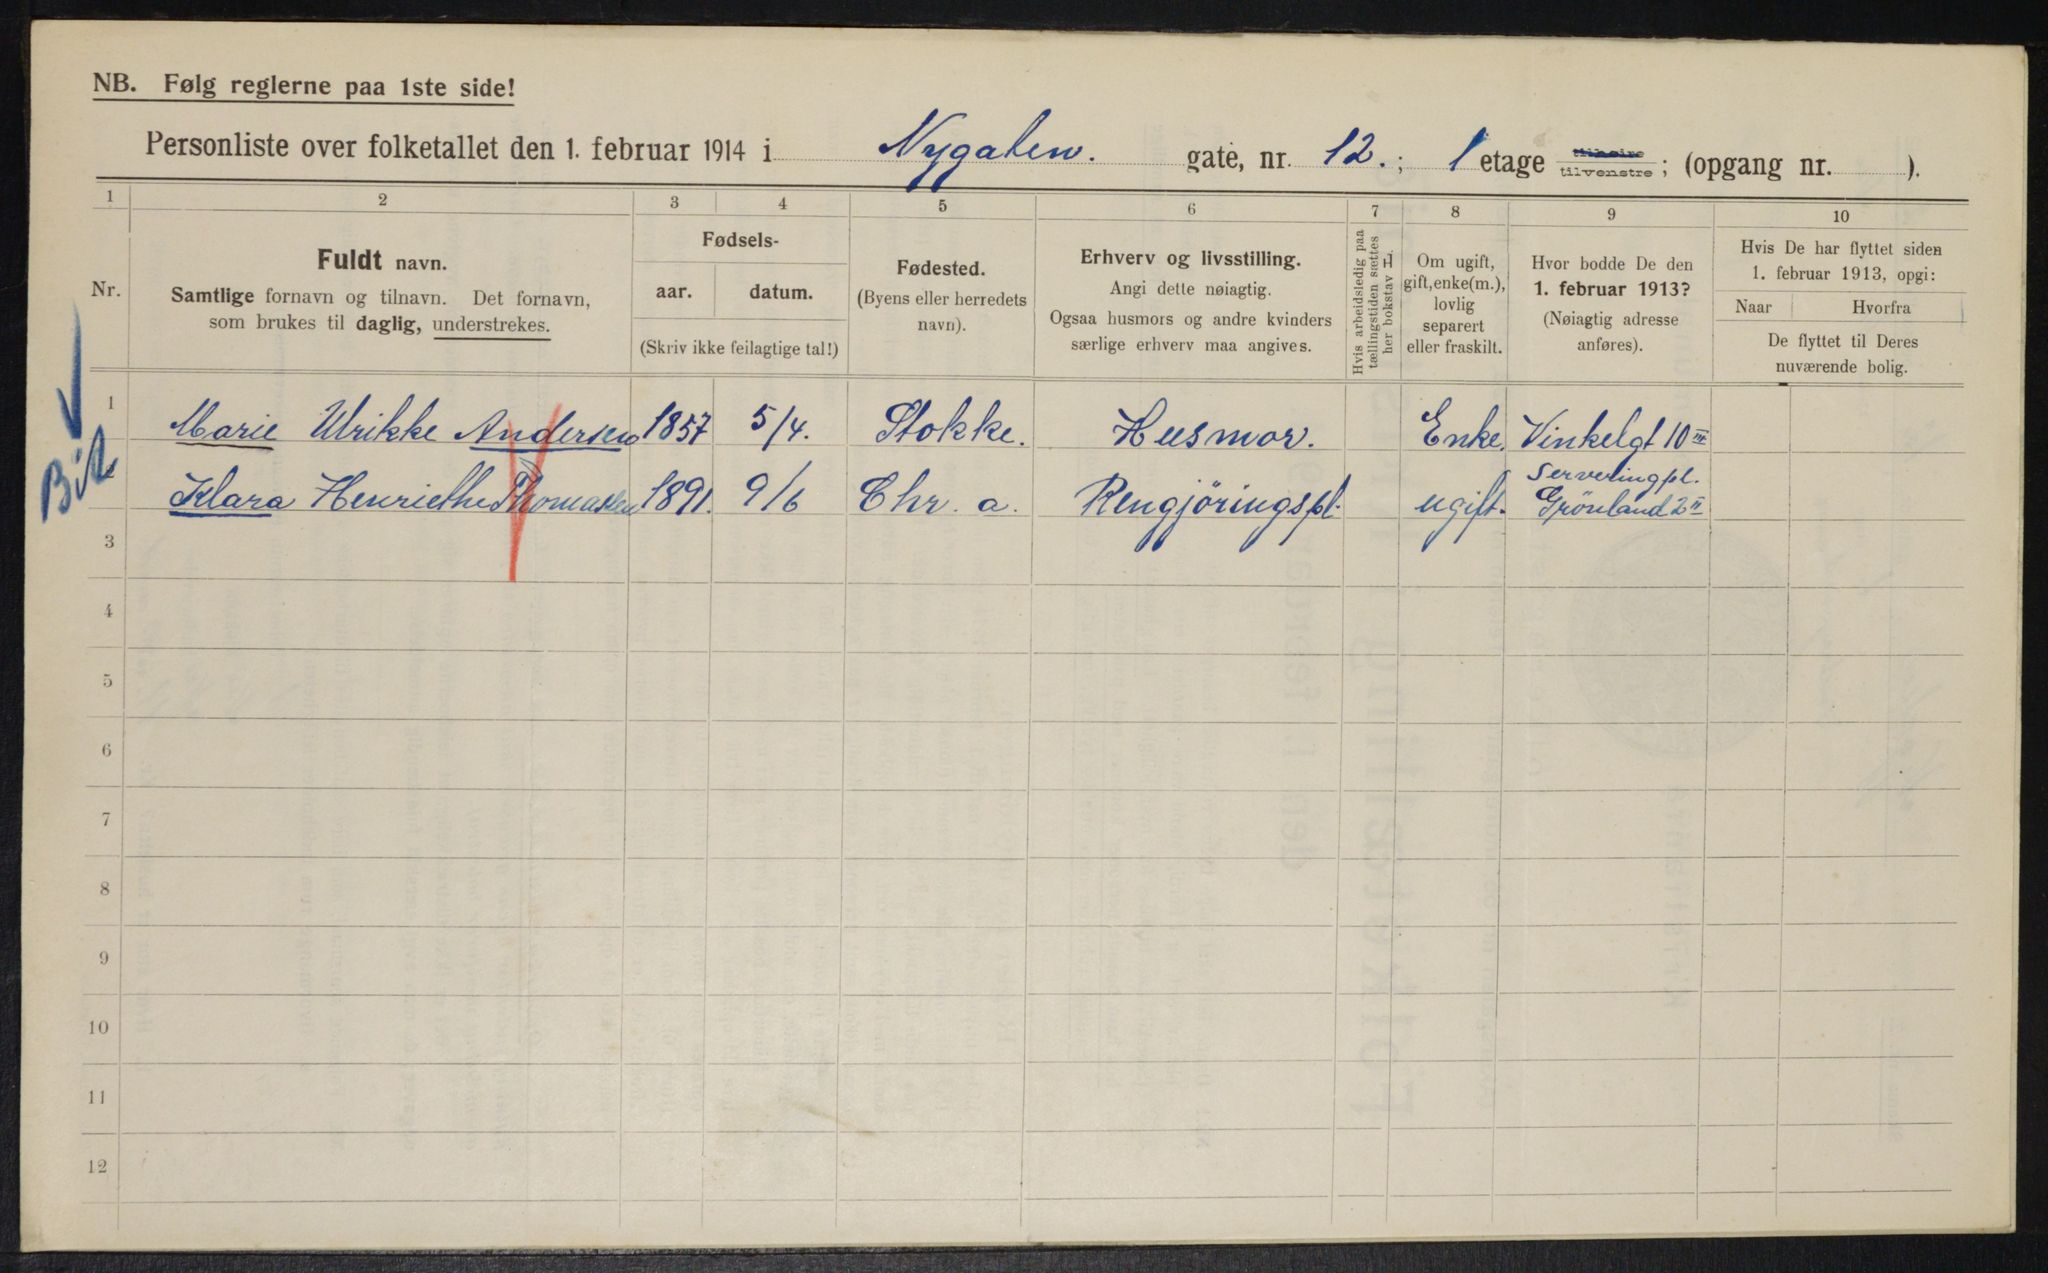 NB. Følg reglerne paa 1ste side!
Personliste over folketallet den 1. februar 1914 i Nygaten. gate, nr. 12.; 1 etage tilhøire tilvenstre; (opgang nr. ).
1 2 3 4 5 6 7 8 9 10
Nr.
Fuldt navn.
Samtlige fornavn og tilnavn. Det fornavn,
som brukes til daglig, understrekes.
Fødsels-
aar. datum.
(Skriv ikke feilagtige tal!)
Fødested.
(Byens eller herredets
navn).
Erhverv og livsstilling.
Angi dette nøiagtig.
Ogsaa husmors og andre kvinders
særlige erhverv maa angives.
Hvis arbeidsledig paa
tællingstiden sættes
her bokstav L.
Om ugift,
gift, enke(m.),
lovlig
separert
eller fraskilt.
Hvor bodde De den
1. februar 1913?
(Nøiagtig adresse
anføres).
Hvis De har flyttet siden
1. februar 1913, opgi:
Naar Hvorfra
De flyttet til Deres
nuværende bolig.
1 Marie Ulrikke Andersen 1857 5/4. Stokke. Husmor. Enke. Vinkelgt 10 III
Serveringpl.
Klara Henriethe Thomassen 1891. 9/6 Chr. a. Rengjöringspl. ugift. Grönland 2 II
3
4
5
6
7
8
9
10
11
12